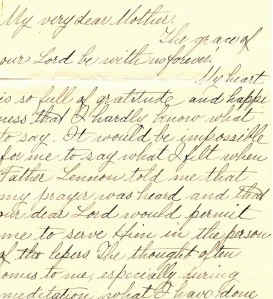 My very dear Mother,
The grace of
our Lord be with us forever!
My heart
is so full of gratitude and happi
ness that I hardly know what
to say. It would be impossible
for me to say what I felt when
Father Lennon told me that
my prayer was heard and that
our dear Lord would permit
me to serve Him in the person
of the lepers The thought often
comes to me, especially during
meditation, what I have done